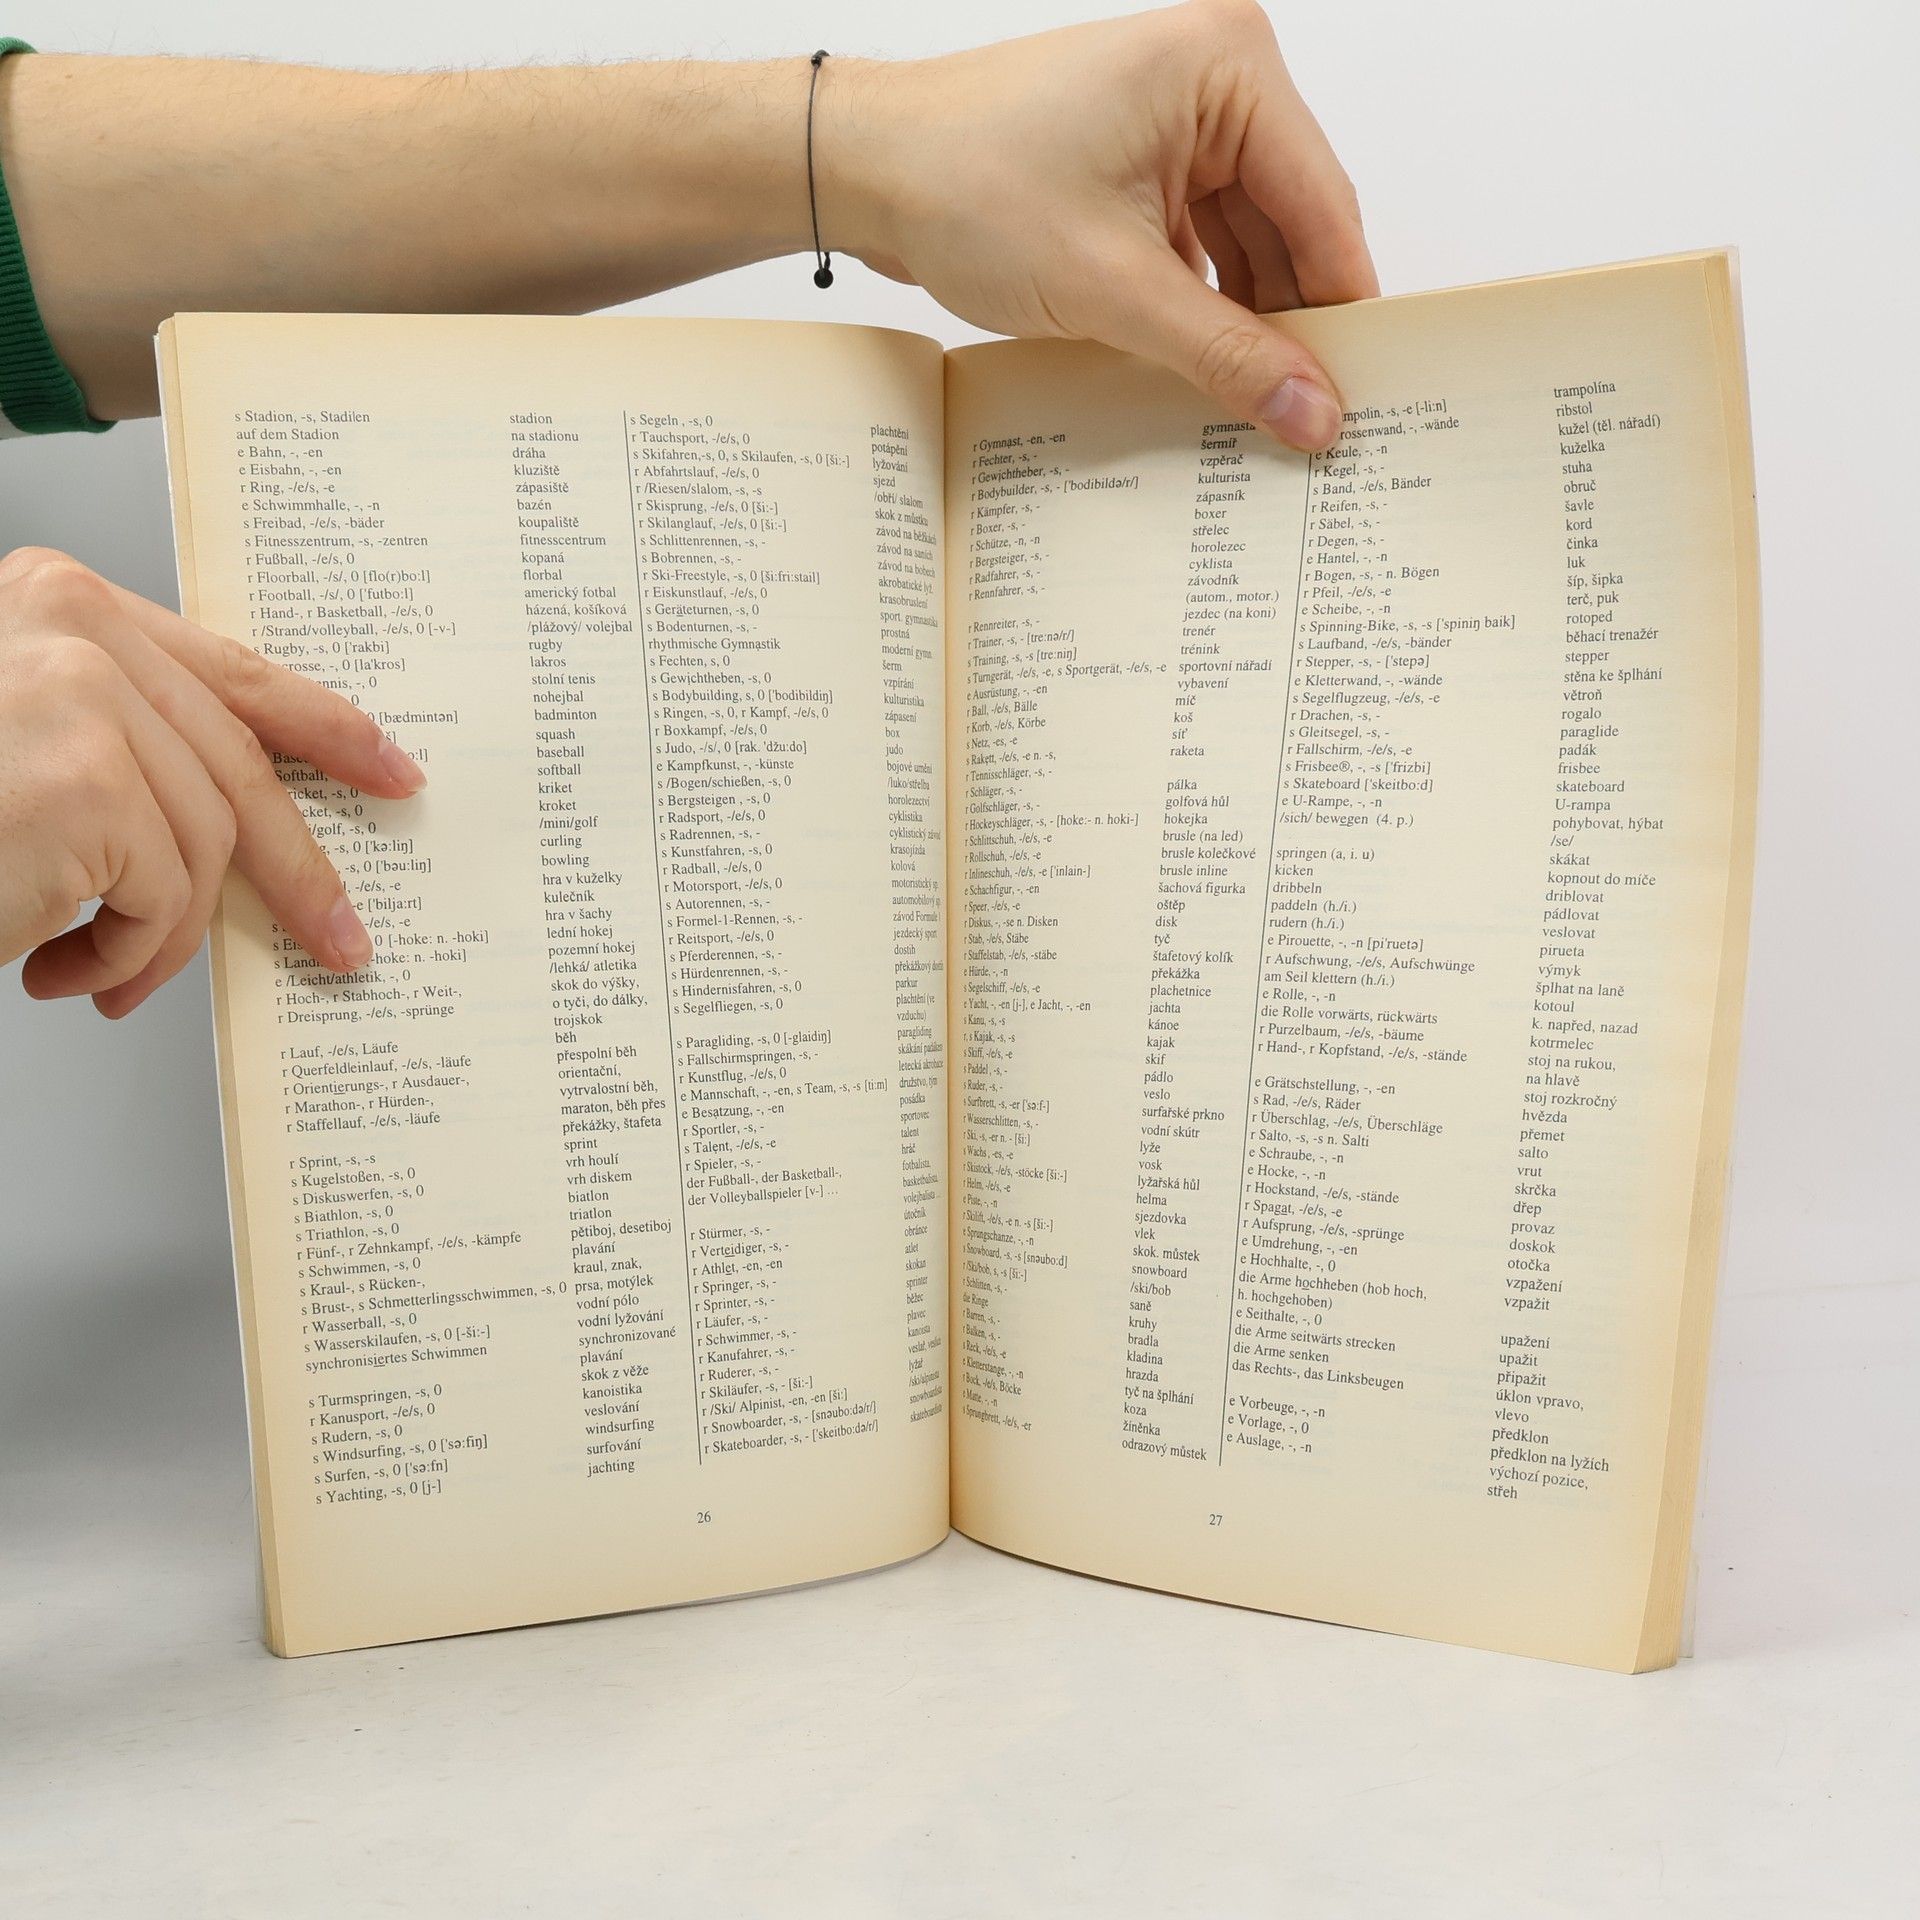 s Stadion, -s, Stadien stadion
auf dem Stadion na stadionu
e Bahn, -, -en dráha
e Eisbahn, -, -en kluziště
r Ring, -/e/s, -e zápasiště
e Schwimmhalle, -, -n bazén
s Freibad, -/e/s, -bäder koupaliště
s Fitnesszentrum, -s, -zentren fitnesscentrum
r Fußball, -/e/s, 0 kopaná
r Floorball, -/s/, 0 [flo(r)bo:l] florbal
r Football, -/s/, 0 ['futbo:l] americký fotbal
r Hand-, r Basketball, -/e/s, 0 házená, košíková
r /Strand/volleyball, -/e/s, 0 [-v-] /plážový/ volejbal
s Rugby, -s, 0 ['rakbi] rugby
crosse, -, 0 [la'kros] lakros
ennis, -, 0 stolní tenis
0 nohejbal
0 [bædmintən] badminton
squash
Base bo:l] baseball
Softball, softball
ricket, -s, 0 kriket
cket, -s, 0 kroket
i/golf, -s, 0 /mini/golf
-s, 0 ['kə:liŋ] curling
-s, 0 ['bəu:liŋ] bowling
-/e/s, -e hra v kuželky
-e ['bilja:rt] kulečník
-/e/s, -e hra v šachy
s Eis 0 [-hoke: n. -hoki] lední hokej
s Land [-hoke: n. -hoki] pozemní hokej
e /Leicht/athletik, -, 0 /lehká/ atletika
r Hoch-, r Stabhoch-, r Weit-, skok do výšky,
r Dreisprung, -/e/s, -sprünge o tyči, do dálky,
trojskok
r Lauf, -/e/s, Läufe běh
r Querfeldleinlauf, -/e/s, -läufe přespolní běh
r Orientierungs-, r Ausdauer-, orientační,
r Marathon-, r Hürden-, vytrvalostní běh,
r Staffellauf, -/e/s, -läufe maraton, běh přes
překážky, štafeta
r Sprint, -s, -s sprint
s Kugelstoßen, -s, 0 vrh houlí
s Diskuswerfen, -s, 0 vrh diskem
s Biathlon, -s, 0 biatlon
s Triathlon, -s, 0 triatlon
r Fünf-, r Zehnkampf, -/e/s, -kämpfe pětiboj, desetiboj
s Schwimmen, -s, 0 plavání
s Kraul-, s Rücken-, kraul, znak,
s Brust-, s Schmetterlingsschwimmen, -s, 0 prsa, motýlek
r Wasserball, -s, 0 vodní pólo
s Wasserskilaufen, -s, 0 [-ši:-] vodní lyžování
synchronisiertes Schwimmen synchronizované
plavání
s Turmspringen, -s, 0 skok z věže
r Kanusport, -/e/s, 0 kanoistika
s Rudern, -s, 0 veslování
s Windsurfing, -s, 0 ['sə:fiŋ] windsurfing
s Surfen, -s, 0 ['sə:fn] surfování
s Yachting, -s, 0 [j-] jachting
s Segeln , -s, 0 plachtění
r Tauchsport, -/e/s, 0 potápění
s Skifahren,-s, 0, s Skilaufen, -s, 0 [ši:-] lyžování
r Abfahrtslauf, -/e/s, 0 sjezd
r /Riesen/slalom, -s, -s /obří/ slalom
r Skisprung, -/e/s, 0 [ši:-] skok z můstku
r Skilanglauf, -/e/s, 0 [ši:-] závod na běžkách
s Schlittenrennen, -s, - závod na saních
s Bobrennen, -s, - závod na bobech
r Ski-Freestyle, -s, 0 [ši:fri:stail] akrobatické lyž.
r Eiskunstlauf, -/e/s, 0 krasobruslení
s Geräteturnen, -s, 0 sport. gymnastika
s Bodenturnen, -s, - prostná
rhythmische Gymnastik moderní gymn.
s Fechten, s, 0 šerm
s Gewichtheben, -s, 0 vzpírání
s Bodybuilding, s, 0 ['bodibildiŋ] kulturistika
s Ringen, -s, 0, r Kampf, -/e/s, 0 zápasení
r Boxkampf, -/e/s, 0 box
s Judo, -/s/, 0 [rak. 'džu:do] judo
e Kampfkunst, -, -künste bojové umění
s /Bogen/schießen, -s, 0 /luko/střelba
s Bergsteigen , -s, 0 horolezectví
r Radsport, -/e/s, 0 cyklistika
s Radrennen, -s, - cyklistický závod
s Kunstfahren, -s, 0 krasojízda
r Radball, -/e/s, 0 kolová
r Motorsport, -/e/s, 0 motoristický sp.
s Autorennen, -s, - automobilový sp.
s Formel-1-Rennen, -s, - závod Formule 1
r Reitsport, -/e/s, 0 jezdecký sport
s Pferderennen, -s, - dostih
s Hürdenrennen, -s, - překážkový dostih
s Hindernisfahren, -s, - parkur
s Segelfliegen, -s, 0 plachtění (ve
vzduchu)
s Paragliding, -s, 0 [-glaidiŋ] paragliding
s Fallschirmspringen, -s, - skákání padákem
r Kunstflug, -/e/s, 0 letecká akrobacie
e Mannschaft, -, -en, s Team, -s, -s [ti:m] družstvo, tým
e Besatzung, -, -en posádka
r Sportler, -s, - sportovec
s Talent, -/e/s, -e talent
r Spieler, -s, - hráč
der Fußball-, der Basketball-, fotbalista,
der Volleyballspieler [v-] ... basketbalista,
volejbalista ...
r Stürmer, -s, - útočník
r Verteidiger, -s, - obránce
r Athlet, -en, -en atlet
r Springer, -s, - skokan
r Sprinter, -s, - sprinter
r Läufer, -s, - běžec
r Schwimmer, -s, - plavec
r Kanufahrer, -s, - kanoista
r Ruderer, -s, - veslař,
r Skiläufer, -s, - [ši:-] lyžař
r /Ski/ Alpinist, -en, -en [ši:] /ski/alpinista
r Snowboarder, -s, - [snəubo:də/r/] snowboardista
r Skateboarder, -s, - ['skeitbo:də/r/] skateboardista
26
r Gymnast, -en, -en gymnasta
r Fechter, -s, - šermíř
r Gewichtheber, -s, - vzpěrač
r Bodybuilder, -s, - ['bodibildə/r/] kulturista
r Kämpfer, -s, - zápasník
r Boxer, -s, - boxer
r Schütze, -n, -n střelec
r Bergsteiger, -s, - horolezec
r Radfahrer, -s, - cyklista
r Rennfahrer, -s, - závodník
(autom., motor.)
r Rennreiter, -s, - jezdec (na koni)
r Trainer, -s, - [tre:nə/r/] trenér
s Training, -s, -s [tre:niŋ] trénink
s Turngerät, -/e/s, -e, s Sportgerät, -/e/s, -e sportovní nářadí
e Ausrüstung, -, -en vybavení
r Ball, -/e/s, Bälle míč
r Korb, -/e/s, Körbe koš
s Netz, -es, -e síť
s Rakett, -/e/s, -e n. -s, raketa
r Tennisschläger, -s, -
r Schläger, -s, - pálka
r Golfschläger, -s, - golfová hůl
r Hockeyschläger, -s, - [hoke:- n. hoki-] hokejka
r Schlittschuh, -/e/s, -e brusle (na led)
r Rollschuh, -/e/s, -e brusle kolečkové
r Inlineschuh, -/e/s, -e ['inlain-] brusle inline
e Schachfigur, -, -en šachová figurka
r Speer, -/e/s, -e oštěp
r Diskus, -, -se n. Disken disk
r Stab, -/e/s, Stäbe tyč
r Staffelstab, -/e/s, -stäbe štafetový kolík
e Hürde, -, -n překážka
s Segelschiff, -/e/s, -e plachetnice
e Yacht, -, -en [j-], e Jacht, -, -en jachta
s Kanu, -s, -s kánoe
r, s Kajak, -s, -s kajak
s Skiff, -/e/s, -e skif
s Paddel, -s, - pádlo
s Ruder, -s, - veslo
s Surfbrett, -s, -er ['sə:f-] surfařské prkno
r Wasserschlitten, -s, - vodní skútr
r Ski, -s, -er n. - [ši:] lyže
s Wachs, -es, -e vosk
r Skistock, -/e/s, -stöcke [ši:-] lyžařská hůl
r Helm, -/e/s, -e helma
e Piste, -, -n sjezdovka
r Skilift, -/e/s, -e n. -s [ši:-] vlek
e Sprungschanze, -, -n skok. můstek
s Snowboard, -s, -s [snəubo:d] snowboard
r /Ski/bob, s, -s [ši:-] /ski/bob
r Schlitten, -s, - saně
die Ringe kruhy
r Barren, -s, - bradla
r Balken, -s, - kladina
s Reck, -/e/s, -e hrazda
e Kletterstange, -, -n tyč na šplhání
r Bock, -/e/s, Böcke koza
e Matte, -, -n žíněnka
s Sprungbrett, -/e/s, -er odrazový můstek
mpolin, -s, -e [-li:n] trampolína
rossenwand, -, -wände ribstol
e Keule, -, -n kužel (těl. nářadí)
r Kegel, -s, - kuželka
s Band, -/e/s, Bänder stuha
r Reifen, -s, - obruč
r Säbel, -s, - šavle
r Degen, -s, - kord
e Hantel, -, -n činka
r Bogen, -s, - n. Bögen luk
r Pfeil, -/e/s, -e šíp, šipka
e Scheibe, -, -n terč, puk
s Spinning-Bike, -s, -s ['spiniŋ baik] rotoped
s Laufband, -/e/s, -bänder běhací trenažér
r Stepper, -s, - ['stepə] stepper
e Kletterwand, -, -wände stěna ke šplhání
s Segelflugzeug, -/e/s, -e větroň
r Drachen, -s, - rogalo
s Gleitsegel, -s, - paraglide
r Fallschirm, -/e/s, -e padák
s Frisbee®, -, -s ['frizbi] frisbee
s Skateboard ['skeitbo:d] skateboard
e U-Rampe, -, -n U-rampa
/sich/ bewegen (4. p.) pohybovat, hýbat
/se/
springen (a, i. u) skákat
kicken kopnout do míče
dribbeln driblovat
paddeln (h./i.) pádlovat
rudern (h./i.) veslovat
e Pirouette, -, -n [pi'ruetə] pirueta
r Aufschwung, -/e/s, Aufschwünge výmyk
am Seil klettern (h./i.) šplhat na laně
e Rolle, -, -n kotoul
die Rolle vorwärts, rückwärts k. napřed, nazad
r Purzelbaum, -/e/s, -bäume kotrmelec
r Hand-, r Kopfstand, -/e/s, -stände stoj na rukou,
na hlavě
e Grätschstellung, -, -en stoj rozkročný
s Rad, -/e/s, Räder hvězda
r Überschlag, -/e/s, Überschläge přemet
r Salto, -s, -s n. Salti salto
e Schraube, -, -n vrut
e Hocke, -, -n skrčka
r Hockstand, -/e/s, -stände dřep
r Spagat, -/e/s, -e provaz
r Aufsprung, -/e/s, -sprünge doskok
e Umdrehung, -, -en otočka
e Hochhalte, -, 0 vzpažení
die Arme hochheben (hob hoch, vzpažit
h. hochgehoben)
e Seithalte, -, 0 upažení
die Arme seitwärts strecken upažit
die Arme senken připažit
das Rechts-, das Linksbeugen úklon vpravo,
vlevo
e Vorbeuge, -, -n předklon
e Vorlage, -, 0 předklon na lyžích
e Auslage, -, -n výchozí pozice,
střeh
27